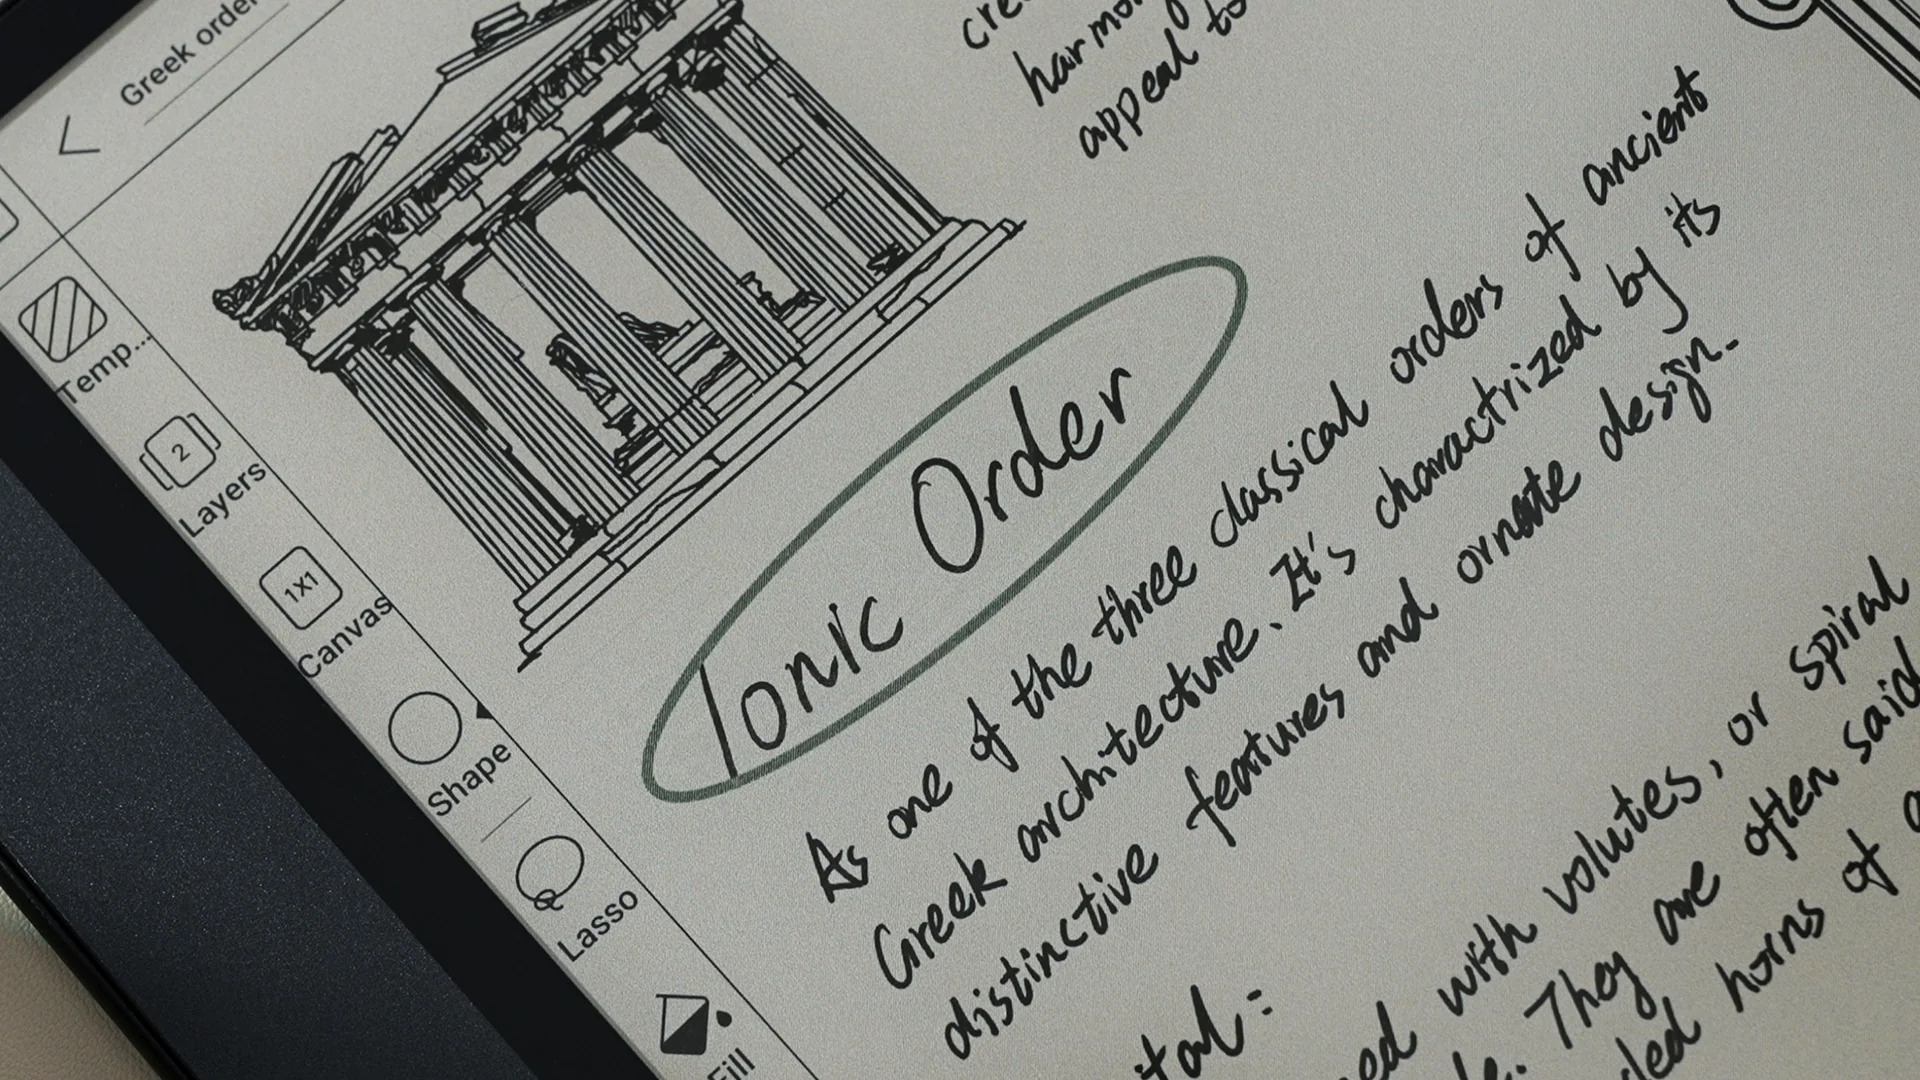 Greek order
Temp...
2
Layers
1X1
Canvas
Shape
Lasso
Fill
harmon
appeal to
Ionic Order
As one of the three classical orders of ancient
Greek architecture. It's charactrized by its
distinctive features and ornate design.
with volutes, or spiral
They are often said
horns of